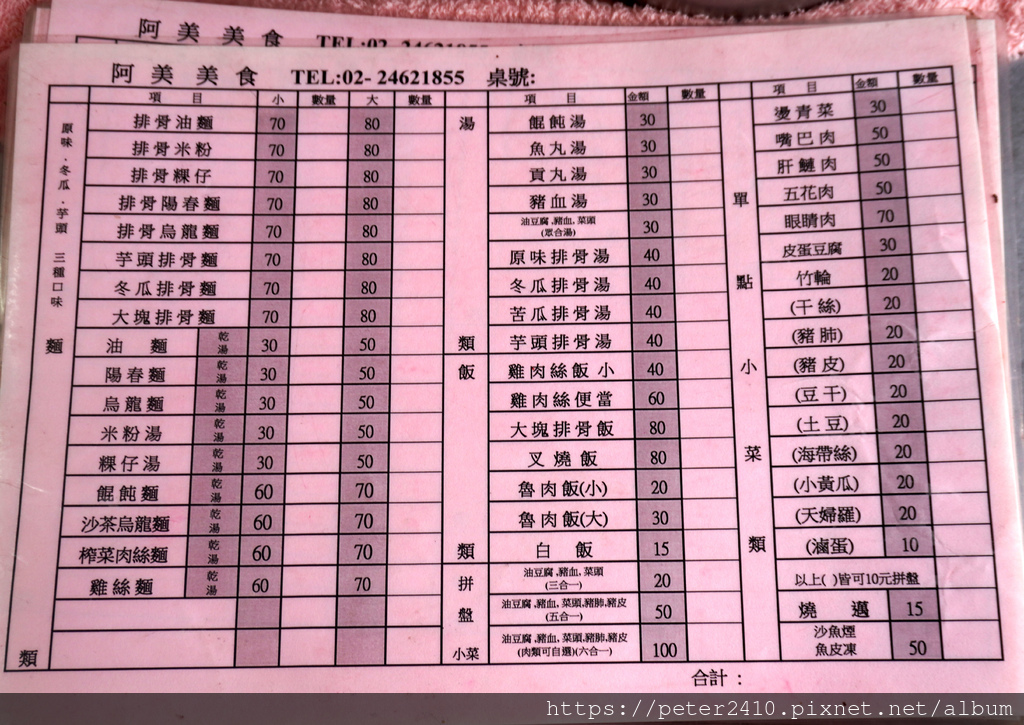 阿美美食 TEL:02-24621855
阿美美食 TEL:02-24621855 桌號:
項目 小 數量 大 數量 項目 金額 數量 項目 金額 數量
原味．冬瓜．芋頭 三種口味
麵類
排骨油麵 70 80
排骨米粉 70 80
排骨粿仔 70 80
排骨陽春麵 70 80
排骨烏龍麵 70 80
芋頭排骨麵 70 80
冬瓜排骨麵 70 80
大塊排骨麵 70 80
油麵 乾湯 30 50
陽春麵 乾湯 30 50
烏龍麵 乾湯 30 50
米粉湯 乾湯 30 50
粿仔湯 乾湯 30 50
餛飩麵 乾湯 60 70
沙茶烏龍麵 乾湯 60 70
榨菜肉絲麵 乾湯 60 70
雞絲麵 乾湯 60 70
湯類
餛飩湯 30
魚丸湯 30
貢丸湯 30
豬血湯 30
油豆腐,豬血,菜頭
(眾合湯) 30
原味排骨湯 40
冬瓜排骨湯 40
苦瓜排骨湯 40
芋頭排骨湯 40
飯類
雞肉絲飯 小 40
雞肉絲便當 60
大塊排骨飯 80
叉燒飯 80
魯肉飯(小) 20
魯肉飯(大) 30
白飯 15
拼盤小菜
油豆腐,豬血,菜頭
(三合一) 20
油豆腐,豬血,菜頭,豬肺,豬皮
(五合一) 50
油豆腐,豬血,菜頭,豬肺,豬皮
(肉類可自選)(六合一) 100
單點小菜類
燙青菜 30
嘴巴肉 50
肝鏈肉 50
五花肉 50
眼睛肉 70
皮蛋豆腐 30
竹輪 20
(干絲) 20
(豬肺) 20
(豬皮) 20
(豆干) 20
(土豆) 20
(海帶絲) 20
(小黃瓜) 20
(天婦羅) 20
(滷蛋) 10
以上( )皆可10元拼盤
燒邁 15
沙魚煙
魚皮凍 50
合計：
https://peter2410.pixnet.net/album